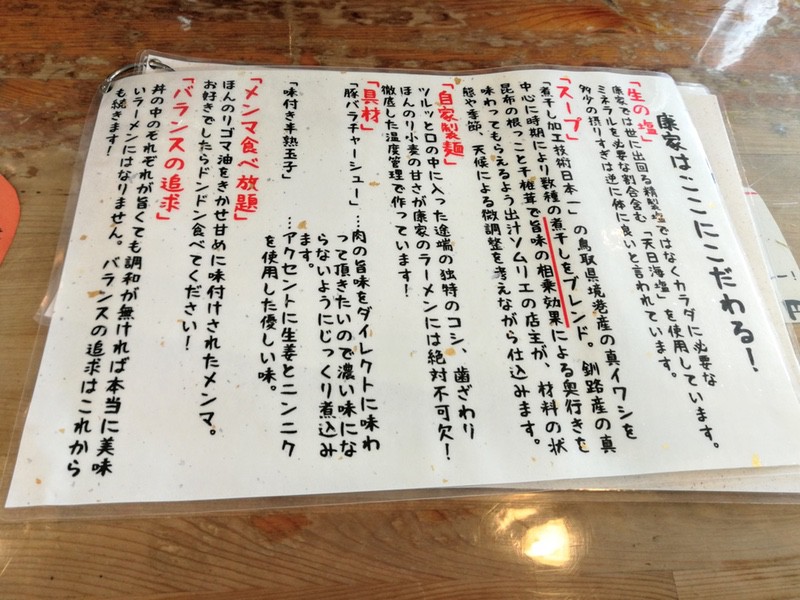 康家はここにこだわる！
「生の塩」
康家では世に出回る精製塩ではなくカラダに必要な
ミネラルを必要な割合含む「天日海塩」を使用しています。
多少の摂りすぎは逆に体に良いと言われています。
「スープ」
「煮干し加工技術日本一」の鳥取県境港産の真イワシを
中心に時期により数種の煮干しをブレンド。釧路産の真
昆布の根っこと干椎茸で旨味の相乗効果による奥行きを
味わってもらえるよう出汁ソムリエの店主が、材料の状
態や季節、天候による微調整を考えながら仕込みます。
「自家製麺」
ツルッと口の中に入った途端の独特のコシ、歯ざわり
ほんのり小麦の甘さが康家のラーメンには絶対不可欠！
徹底した温度管理で作っています！
「具材」
「豚バラチャーシュー」…肉の旨味をダイレクトに味わ
って頂きたいので濃い味にな
らないようにじっくり煮込み
ます。
「味付き半熟玉子」…アクセントに生姜とニンニク
を使用した優しい味。
「メンマ食べ放題」
ほんのりゴマ油をきかせ甘めに味付けされたメンマ。
お好きでしたらドンドン食べてください！
「バランスの追求」
丼の中のそれぞれが旨くても調和が無ければ本当に美味
いラーメンにはなりません。バランスの追求はこれから
も続きます！